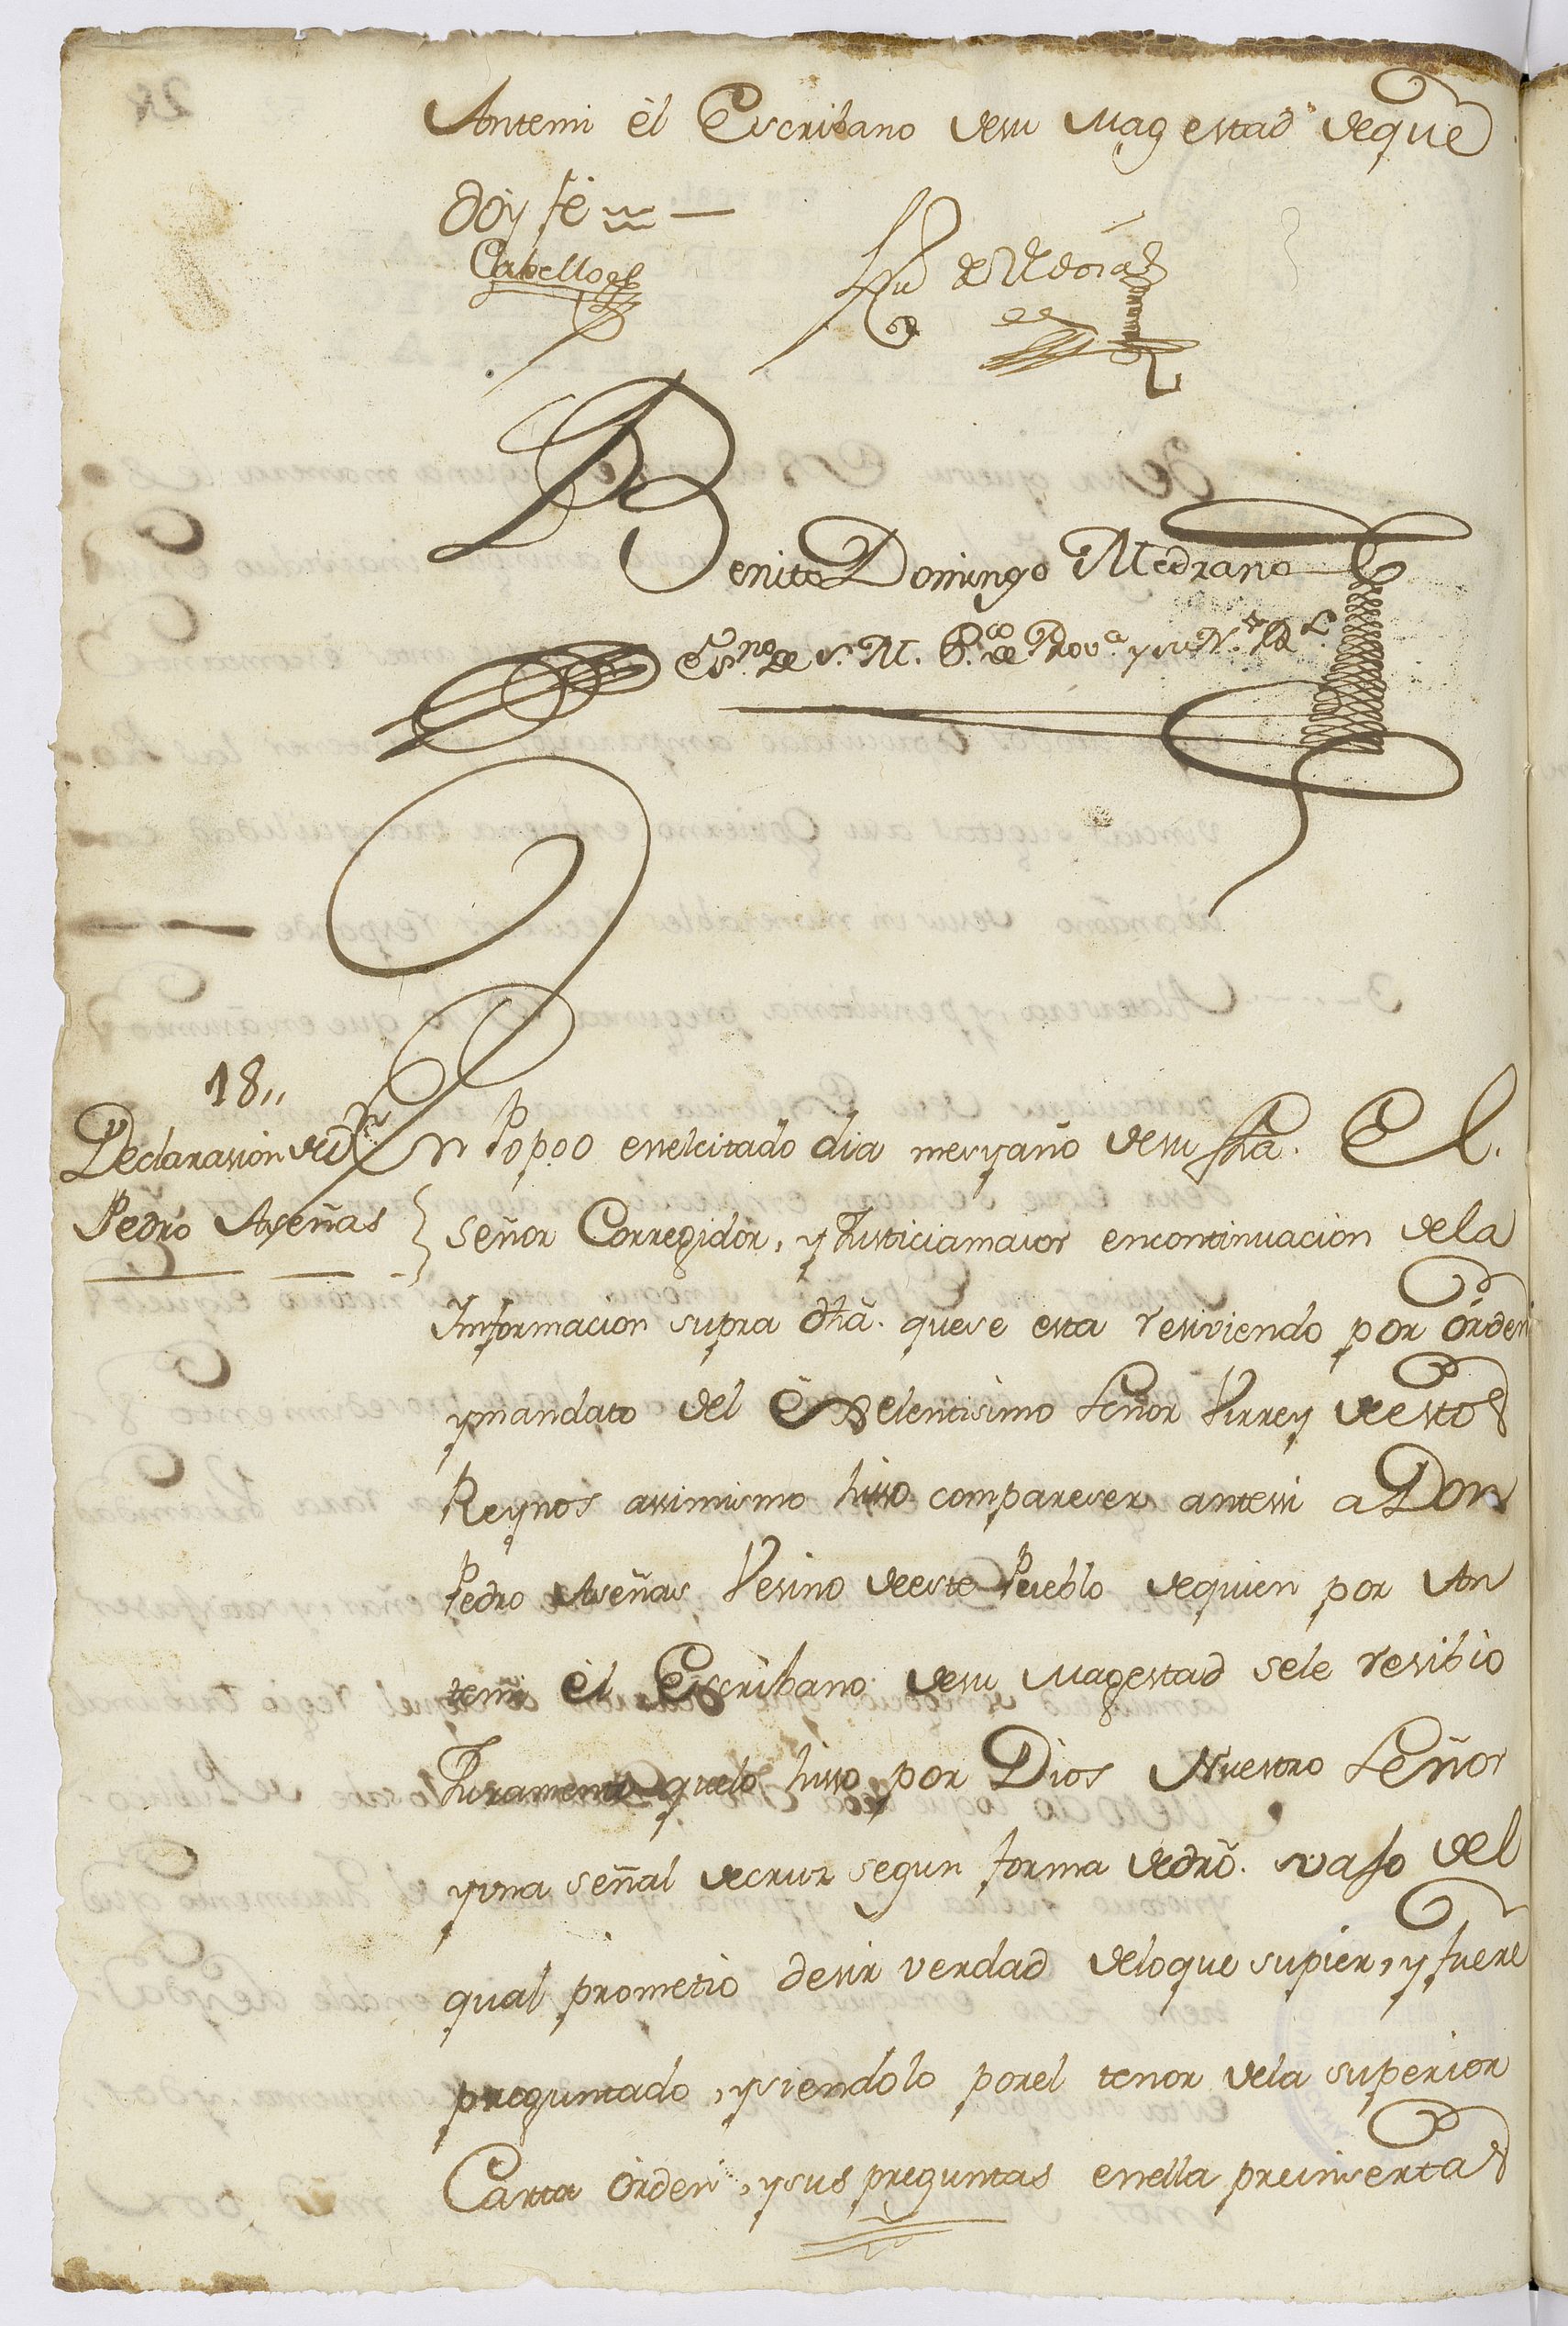 Antemi èl Escribano desu Magestad deque
doy fe
Cabello
Benito Domingo Medrano
Ess.no de S. M. P.co de Prov.a y su
18,,
Declarasion de Dn
Pedro Aseñas
En Popoo enelcitado dia mesyaño desu fha. El.
Señor Corregidor, y Justiciamaior encontinuacion dela
Informacion supra dha. quese esta resiviendo por òrden
ymandato del Exselentisimo Señor Virrey deestos
Reynos assimismo hisso compareser antessi a Don
Pedro Aseñas Vesino deeste Pueblo dequien por An
temi èl Escribano desu Magestad sele resibio
Juramento quelo hisso por Dios Nuestro Señor
yuna señal decrus segun forma dedro. vajo del
qual prometio desir verdad deloque supier, y fuere
preguntado, ysiendolo porel tenor dela superior
Carta òrden, ysus preguntas enella preinsertas